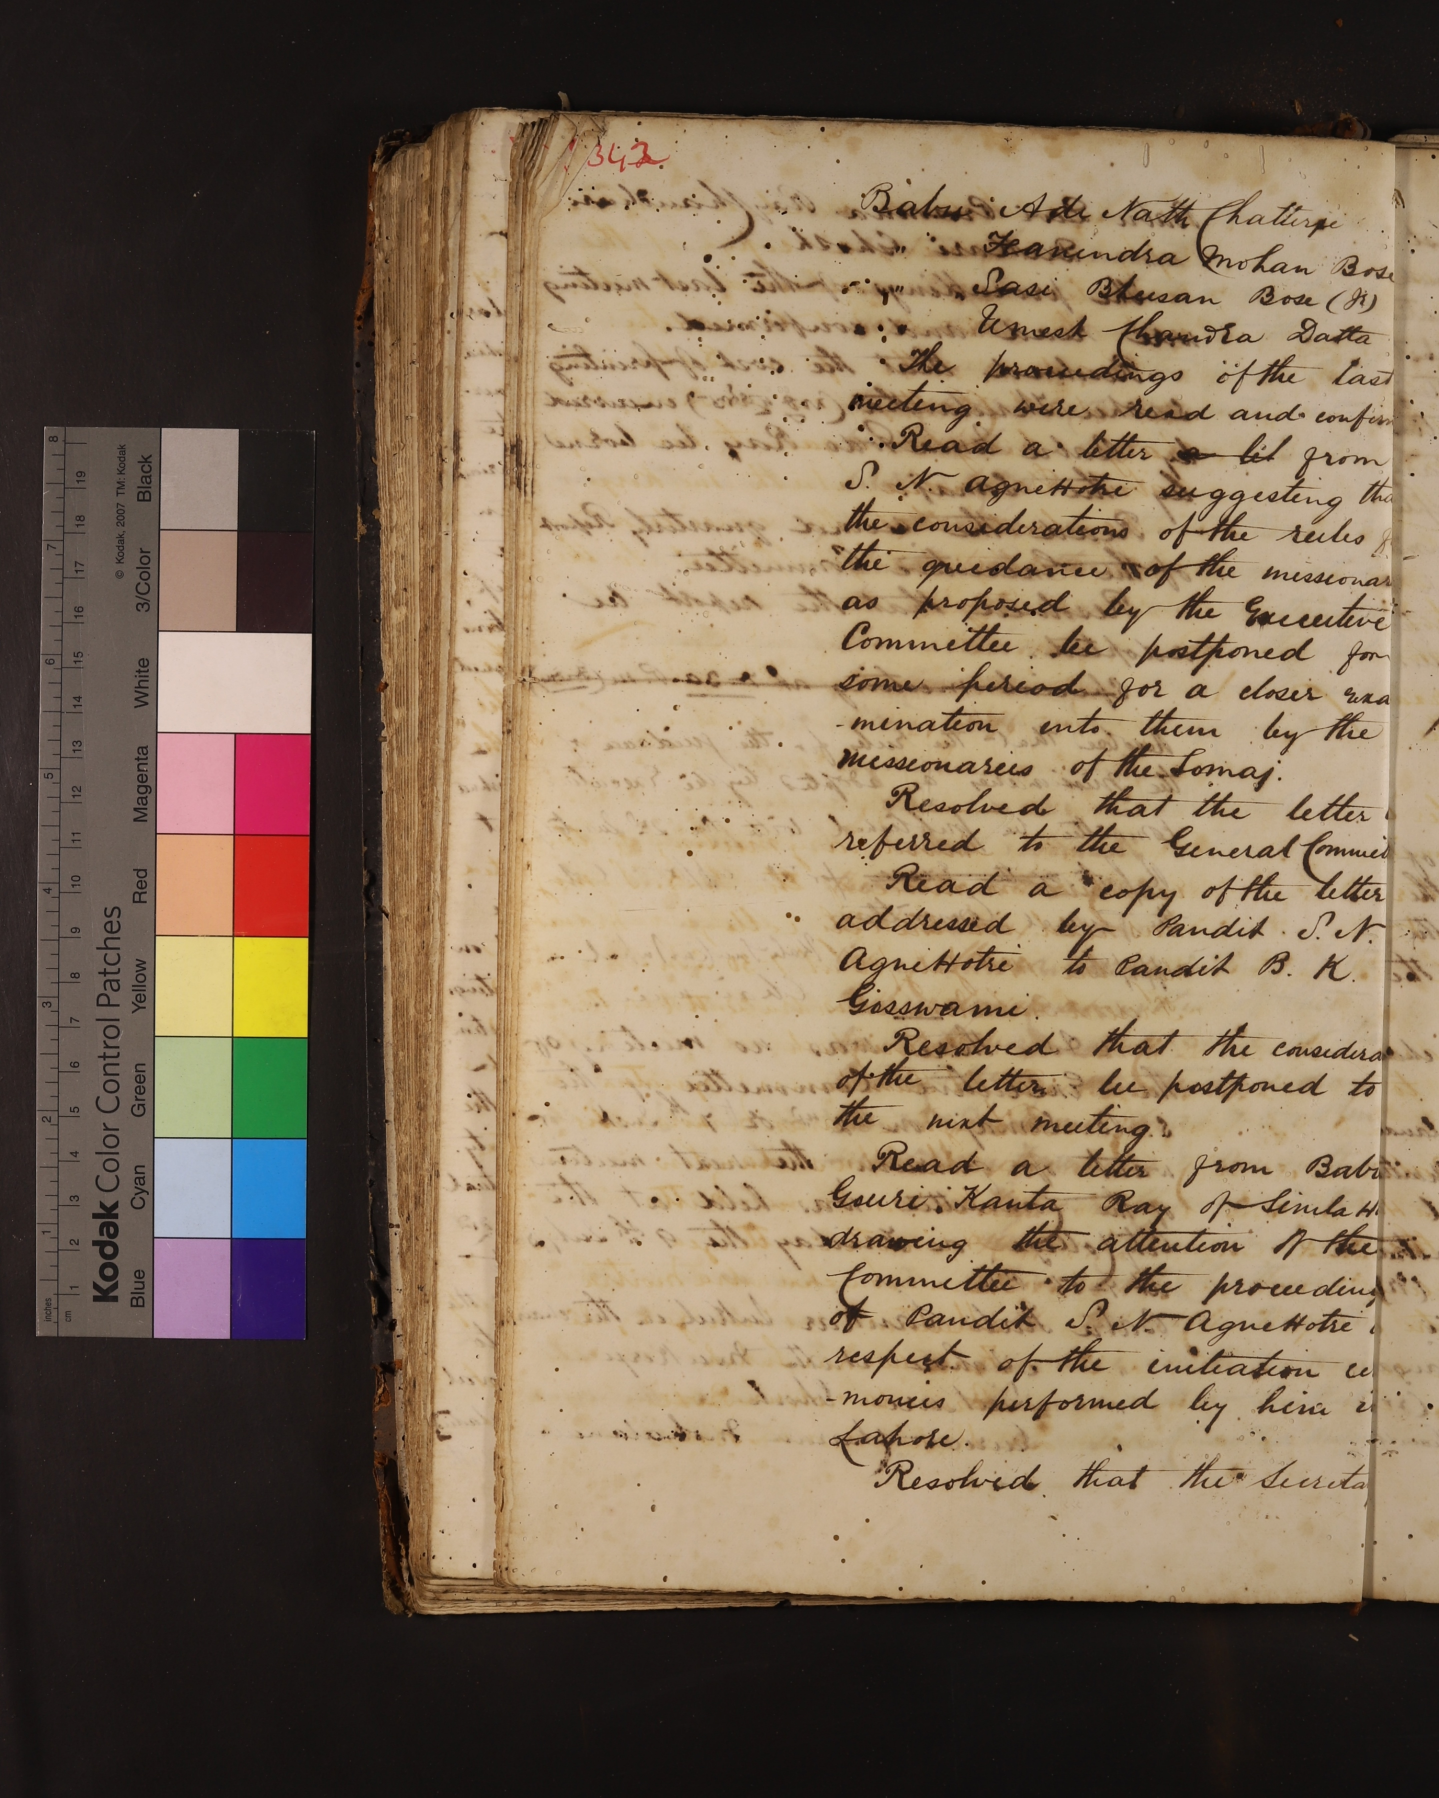 342.
Babu Adi Nath Chatterji
" Fanindra Mohan Bose
" Sasi Bhusan Bose (K)
Umesh Chandra Datta
The proceedings of the last
meeting were read and confirm
Read a letter a let from
S. N. Agnihotri suggesting tha
the considerations of the rules f
the guidance of the missionar
as proposed by the Executive
Committee be postponed for
some period for a closer exa
-mination into them by the
missionaries of the Somaj.
Resolved that the letter
referred to the General Commit
Read a copy of the letter
addressed by Pandit S. N.
Agnihotri to Pandit B. K.
Gosswami.
Resolved that the considera
of the letter be postponed to
the next meeting.
Read a letter from Babu
Gouri Kanta Ray of Simla H.
drawing the attention of the
Committee to the proceeding
of Pandit S. N. Agnihotri
respect of the initiation ce
-monies performed by him i
Lahore.
Resolved that the Secreta
Kodak Color Control Patches
© Kodak, 2007 TM: Kodak
Blue Cyan Green Yellow Red Magenta White 3/Color Black
inches 1 2 3 4 5 6 7 8
cm 1 2 3 4 5 6 7 8 9 10 11 12 13 14 15 16 17 18 19